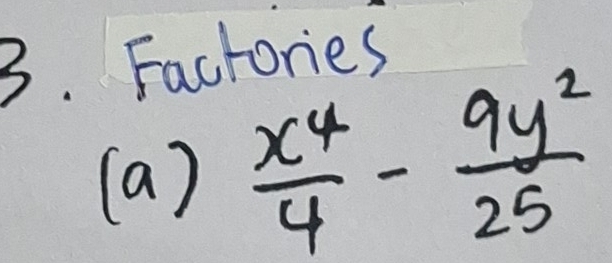 3. Factories
(a) x⁴/4 - 9y²/25